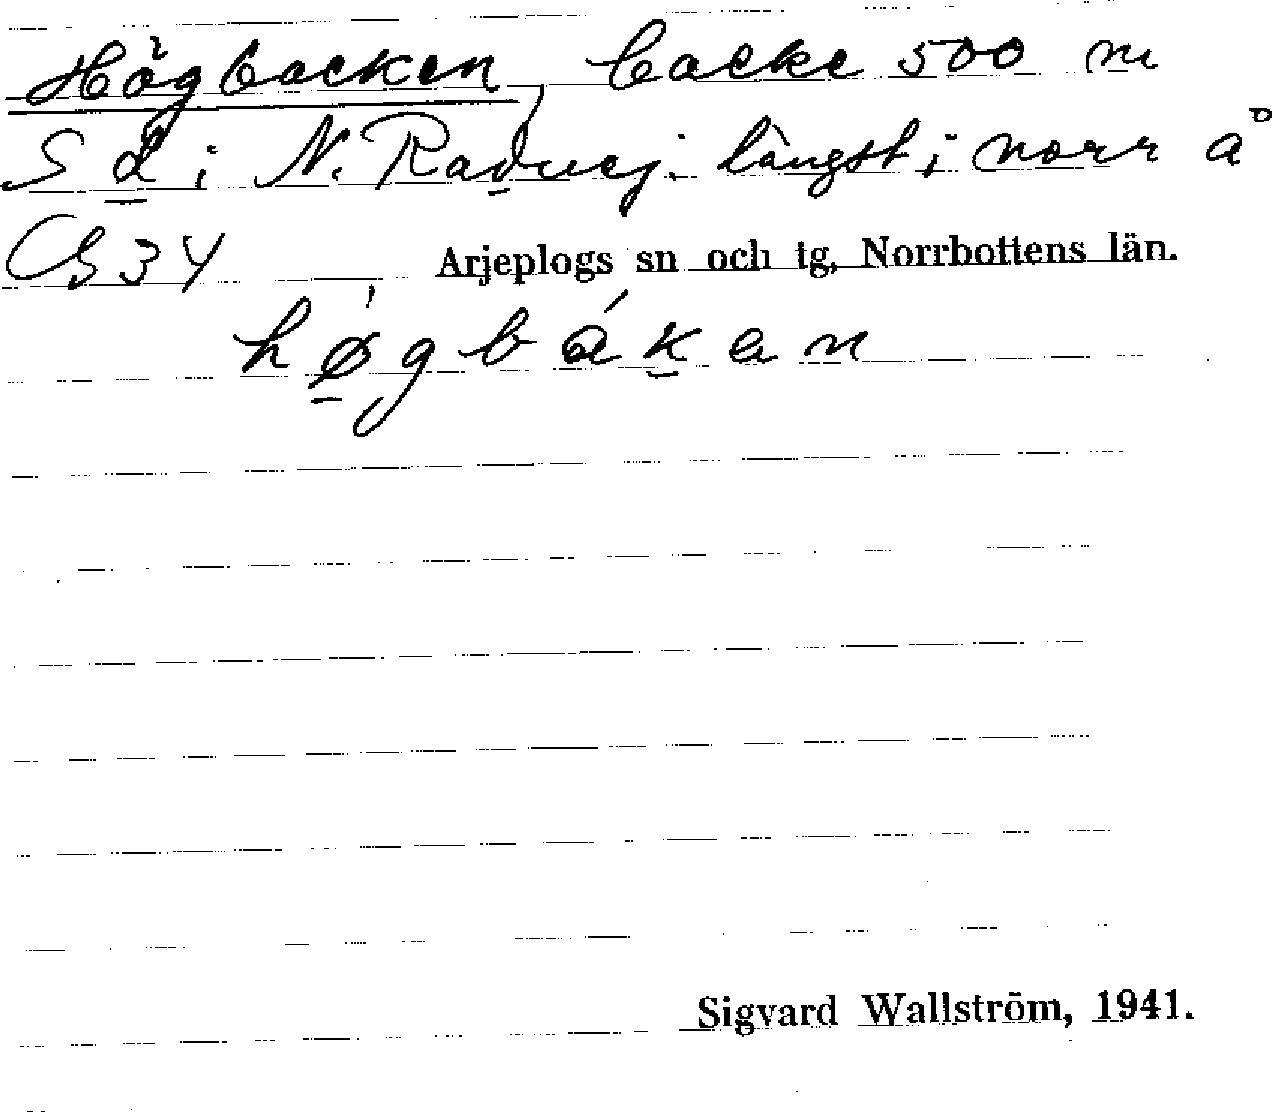 Högbacken, backe 500 m
S d i N. Radvej. längst i norr å
G 34 Arjeplogs sn och tg, Norrbottens län.
høgbákan
Sigvard Wallström, 1941.